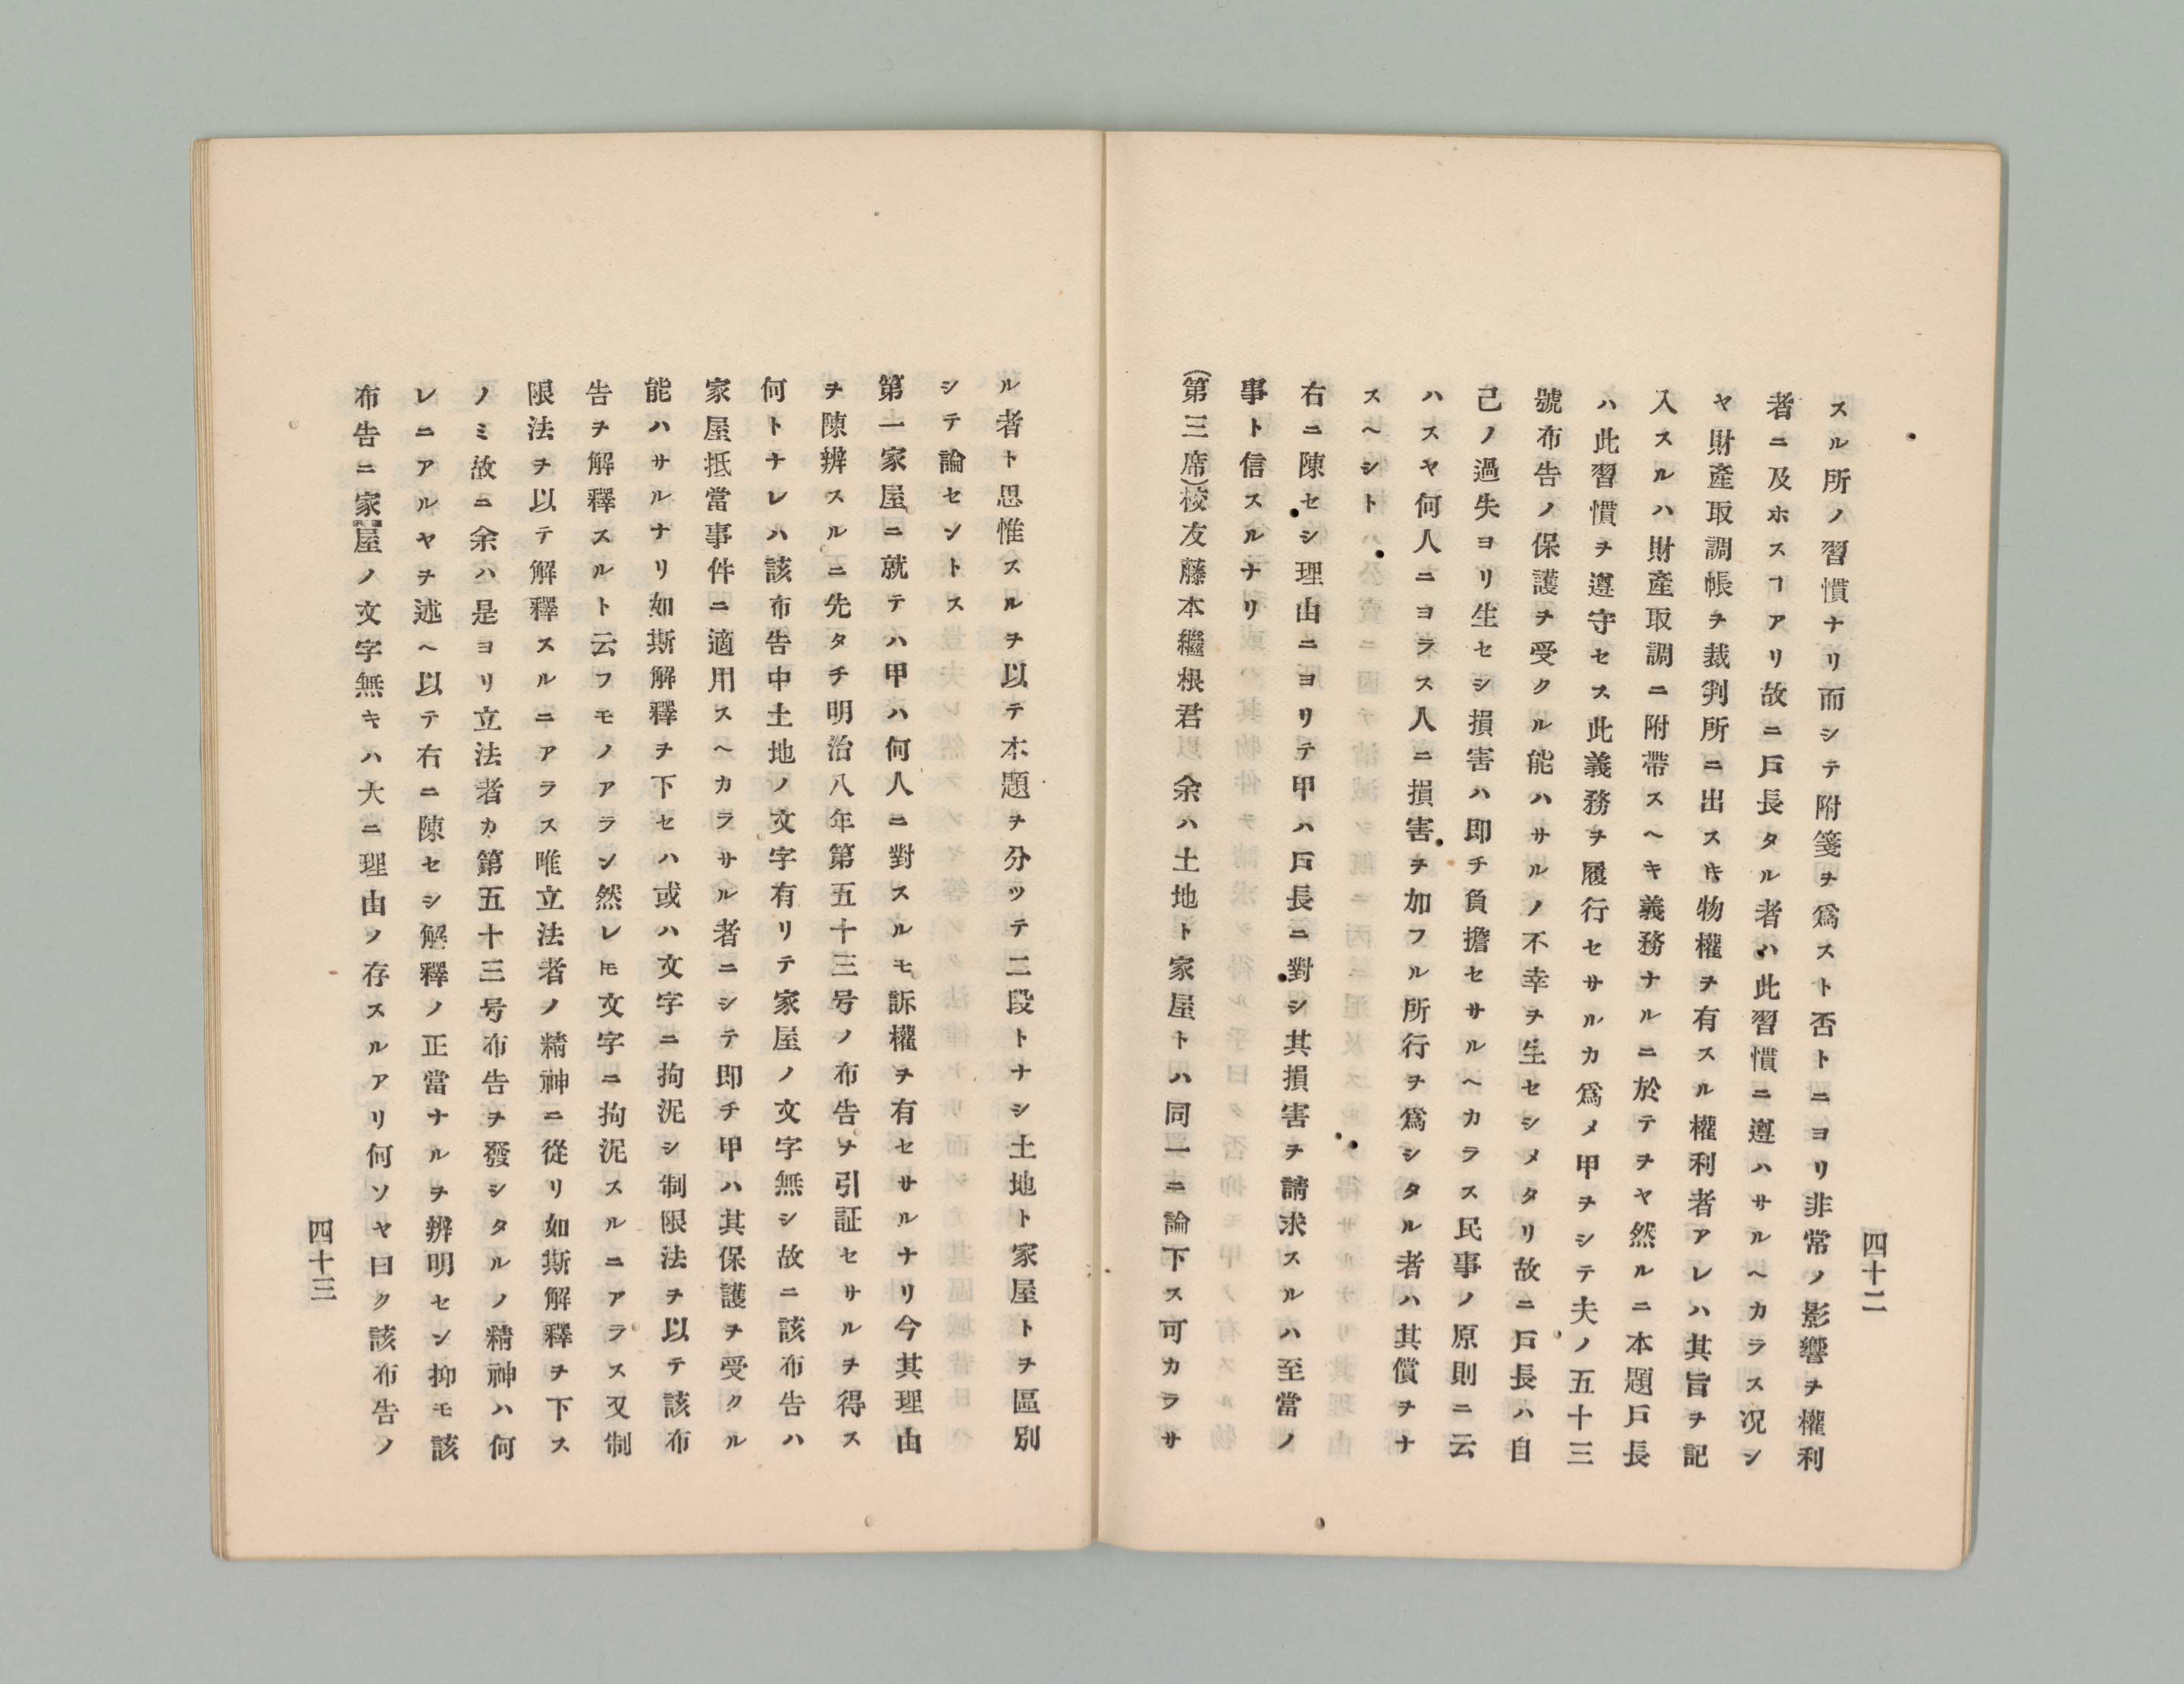 四十二
スル所ノ習慣ナリ而シテ附箋ヲ爲スト否トニヨリ非常ノ影響ヲ權利
者ニ及ホスヿアリ故ニ戸長タル者ハ此習慣ニ遵ハサルヘカラス况シ
ヤ財產取調帳ヲ裁判所ニ出スキ物權ヲ有スル權利者アレハ其旨ヲ記
入スルハ財產取調ニ附帶スヘキ義務ナルニ於テヲヤ然ルニ本題戸長
ハ此習慣ヲ遵守セス此義務ヲ履行セサルカ爲メ甲ヲシテ夫ノ五十三
號布告ノ保護ヲ受クル能ハサルノ不幸ヲ生セシメタリ故ニ戸長ハ自
己ノ過失ヨリ生セシ損害ハ即チ負擔セサルヘカラス民事ノ原則ニ云
ハスヤ何人ニヨラス人ニ損害ヲ加フル所行ヲ爲シタル者ハ其償ヲナ
スヘシト
右ニ陳セシ理由ニヨリテ甲ハ戸長ニ對シ其損害ヲ請求スルハ至當ノ
事ト信スルナリ
(第三席)校友藤本繼根君 余ハ土地ト家屋トハ同一ニ論下ス可カラサ
ル者ト思惟スルヲ以テ本題ヲ分ツテ二段トナシ土地ト家屋トヲ區別
シテ論セントス
第一家屋ニ就テハ甲ハ何人ニ對スルモ訴權ヲ有セサルナリ今其理由
ヲ陳辨スルニ先タチ明治八年第五十三号ノ布告ヲ引証セサルヲ得ス
何トナレハ該布告中土地ノ文字有リテ家屋ノ文字無シ故ニ該布告ハ
家屋抵當事件ニ適用スヘカラサル者ニシテ即チ甲ハ其保護ヲ受クル
能ハサルナリ如斯解釋ヲ下セハ或ハ文字ニ拘泥シ制限法ヲ以テ該布
告ヲ解釋スルト云フモノアラン然レ𪜈文字ニ拘泥スルニアラス又制
限法ヲ以テ解釋スルニアラス唯立法者ノ精神ニ從リ如斯解釋ヲ下ス
ノミ故ニ余ハ是ヨリ立法者カ第五十三号布告ヲ發シタルノ精神ハ何
レニアルヤヲ述ヘ以テ右ニ陳セシ解釋ノ正當ナルヲ辨明セン抑モ該
布告ニ家屋ノ文字無キハ大ニ理由ノ存スルアリ何ソヤ曰ク該布告ノ
四十三